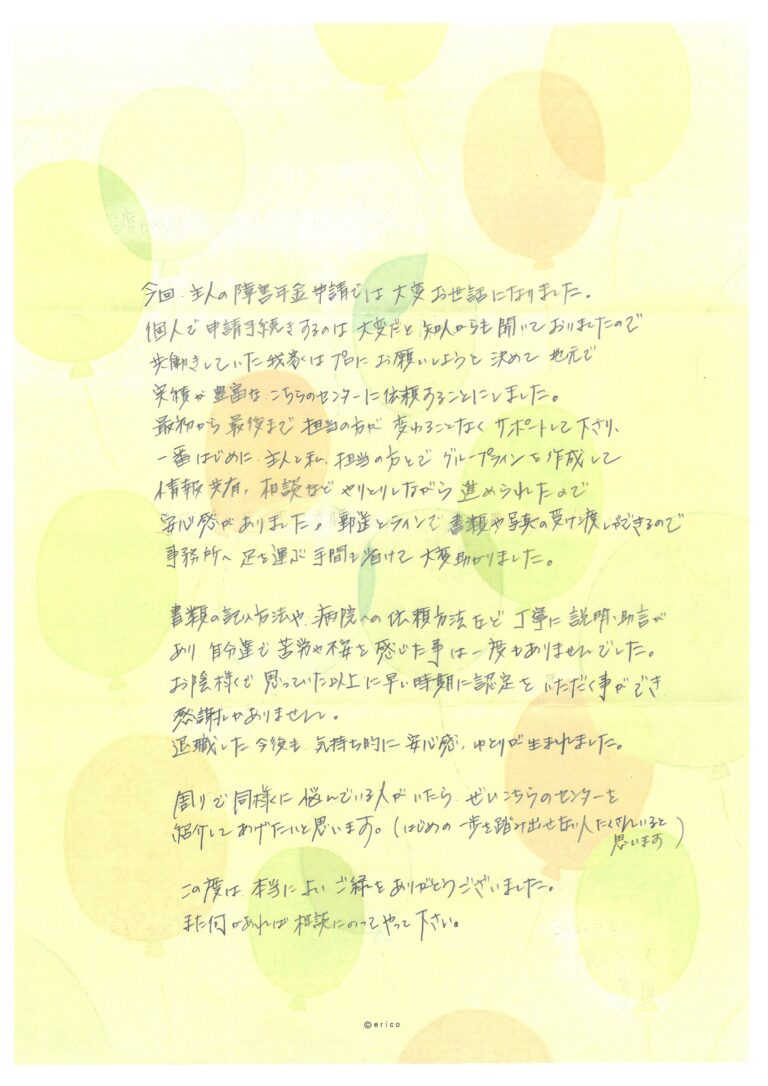 今回、主人の障害年金申請では大変お世話になりました。
個人で申請手続きするのは大変だと知人からも聞いておりましたので
共働きしていた我家はプロにお願いしようと決めて地元で
実績が豊富なこちらのセンターに依頼することにしました。
最初から最後まで担当の方が変わることなくサポートして下さり、
一番はじめに、主人と私、担当の方とでグループラインを作成して
情報共有、相談などやりとりしながら進められたので
安心感がありました。郵送とラインで書類や写真の受け渡しができるので
事務所へ足を運ぶ手間も省けて大変助かりました。
書類の記入方法や、病院への依頼方法など丁寧に説明、助言が
あり自分達で苦労や不安を感じた事は一度もありませんでした。
お陰様で思っていた以上に早い時期に認定をいただく事ができ
感謝しかありません。
退職した今後も気持ち的に安心感、ゆとりが生まれました。
周りで同様に悩んでいる人がいたら、ぜひこちらのセンターを
紹介してあげたいと思います。(はじめの一歩を踏み出せない人たくさんいると
思います)
この度は、本当によいご縁をありがとうございました。
また何かあれば相談にのってやって下さい。
©erico